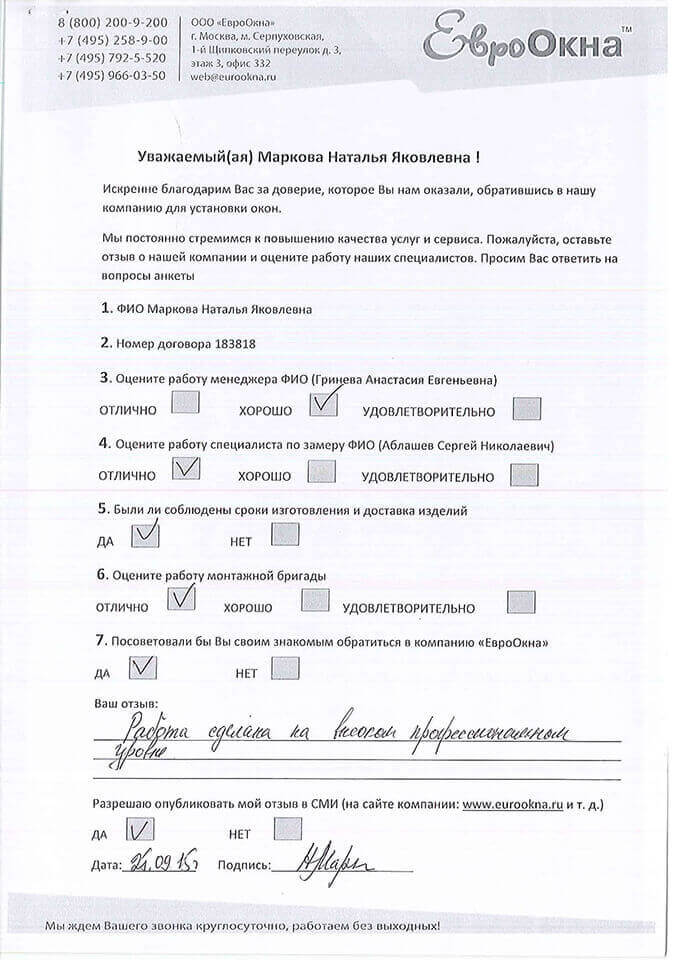 8 (800) 200-9-200
+7 (495) 258-9-00
+7 (495) 792-5-520
+7 (495) 966-03-50
ООО «ЕвроОкна»
г. Москва, м. Серпуховская,
1-й Щипковский переулок д. 3,
этаж 3, офис 332
web@eurookna.ru
ЕвроОкна™
Уважаемый(ая) Маркова Наталья Яковлевна !
Искренне благодарим Вас за доверие, которое Вы нам оказали, обратившись в нашу
компанию для установки окон.
Мы постоянно стремимся к повышению качества услуг и сервиса. Пожалуйста, оставьте
отзыв о нашей компании и оцените работу наших специалистов. Просим Вас ответить на
вопросы анкеты
1. ФИО Маркова Наталья Яковлевна
2. Номер договора 183818
3. Оцените работу менеджера ФИО (Гринева Анастасия Евгеньевна)
ОТЛИЧНО ХОРОШО УДОВЛЕТВОРИТЕЛЬНО
4. Оцените работу специалиста по замеру ФИО (Аблашев Сергей Николаевич)
ОТЛИЧНО ХОРОШО УДОВЛЕТВОРИТЕЛЬНО
5. Были ли соблюдены сроки изготовления и доставка изделий
ДА НЕТ
6. Оцените работу монтажной бригады
ОТЛИЧНО ХОРОШО УДОВЛЕТВОРИТЕЛЬНО
7. Посоветовали бы Вы своим знакомым обратиться в компанию «ЕвроОкна»
ДА НЕТ
Ваш отзыв:
Работа сделана на высоком профессиональном
уровне
Разрешаю опубликовать мой отзыв в СМИ (на сайте компании: www.eurookna.ru и т. д.)
ДА НЕТ
Дата: Подпись:
Мы ждем Вашего звонка круглосуточно, работаем без выходных!